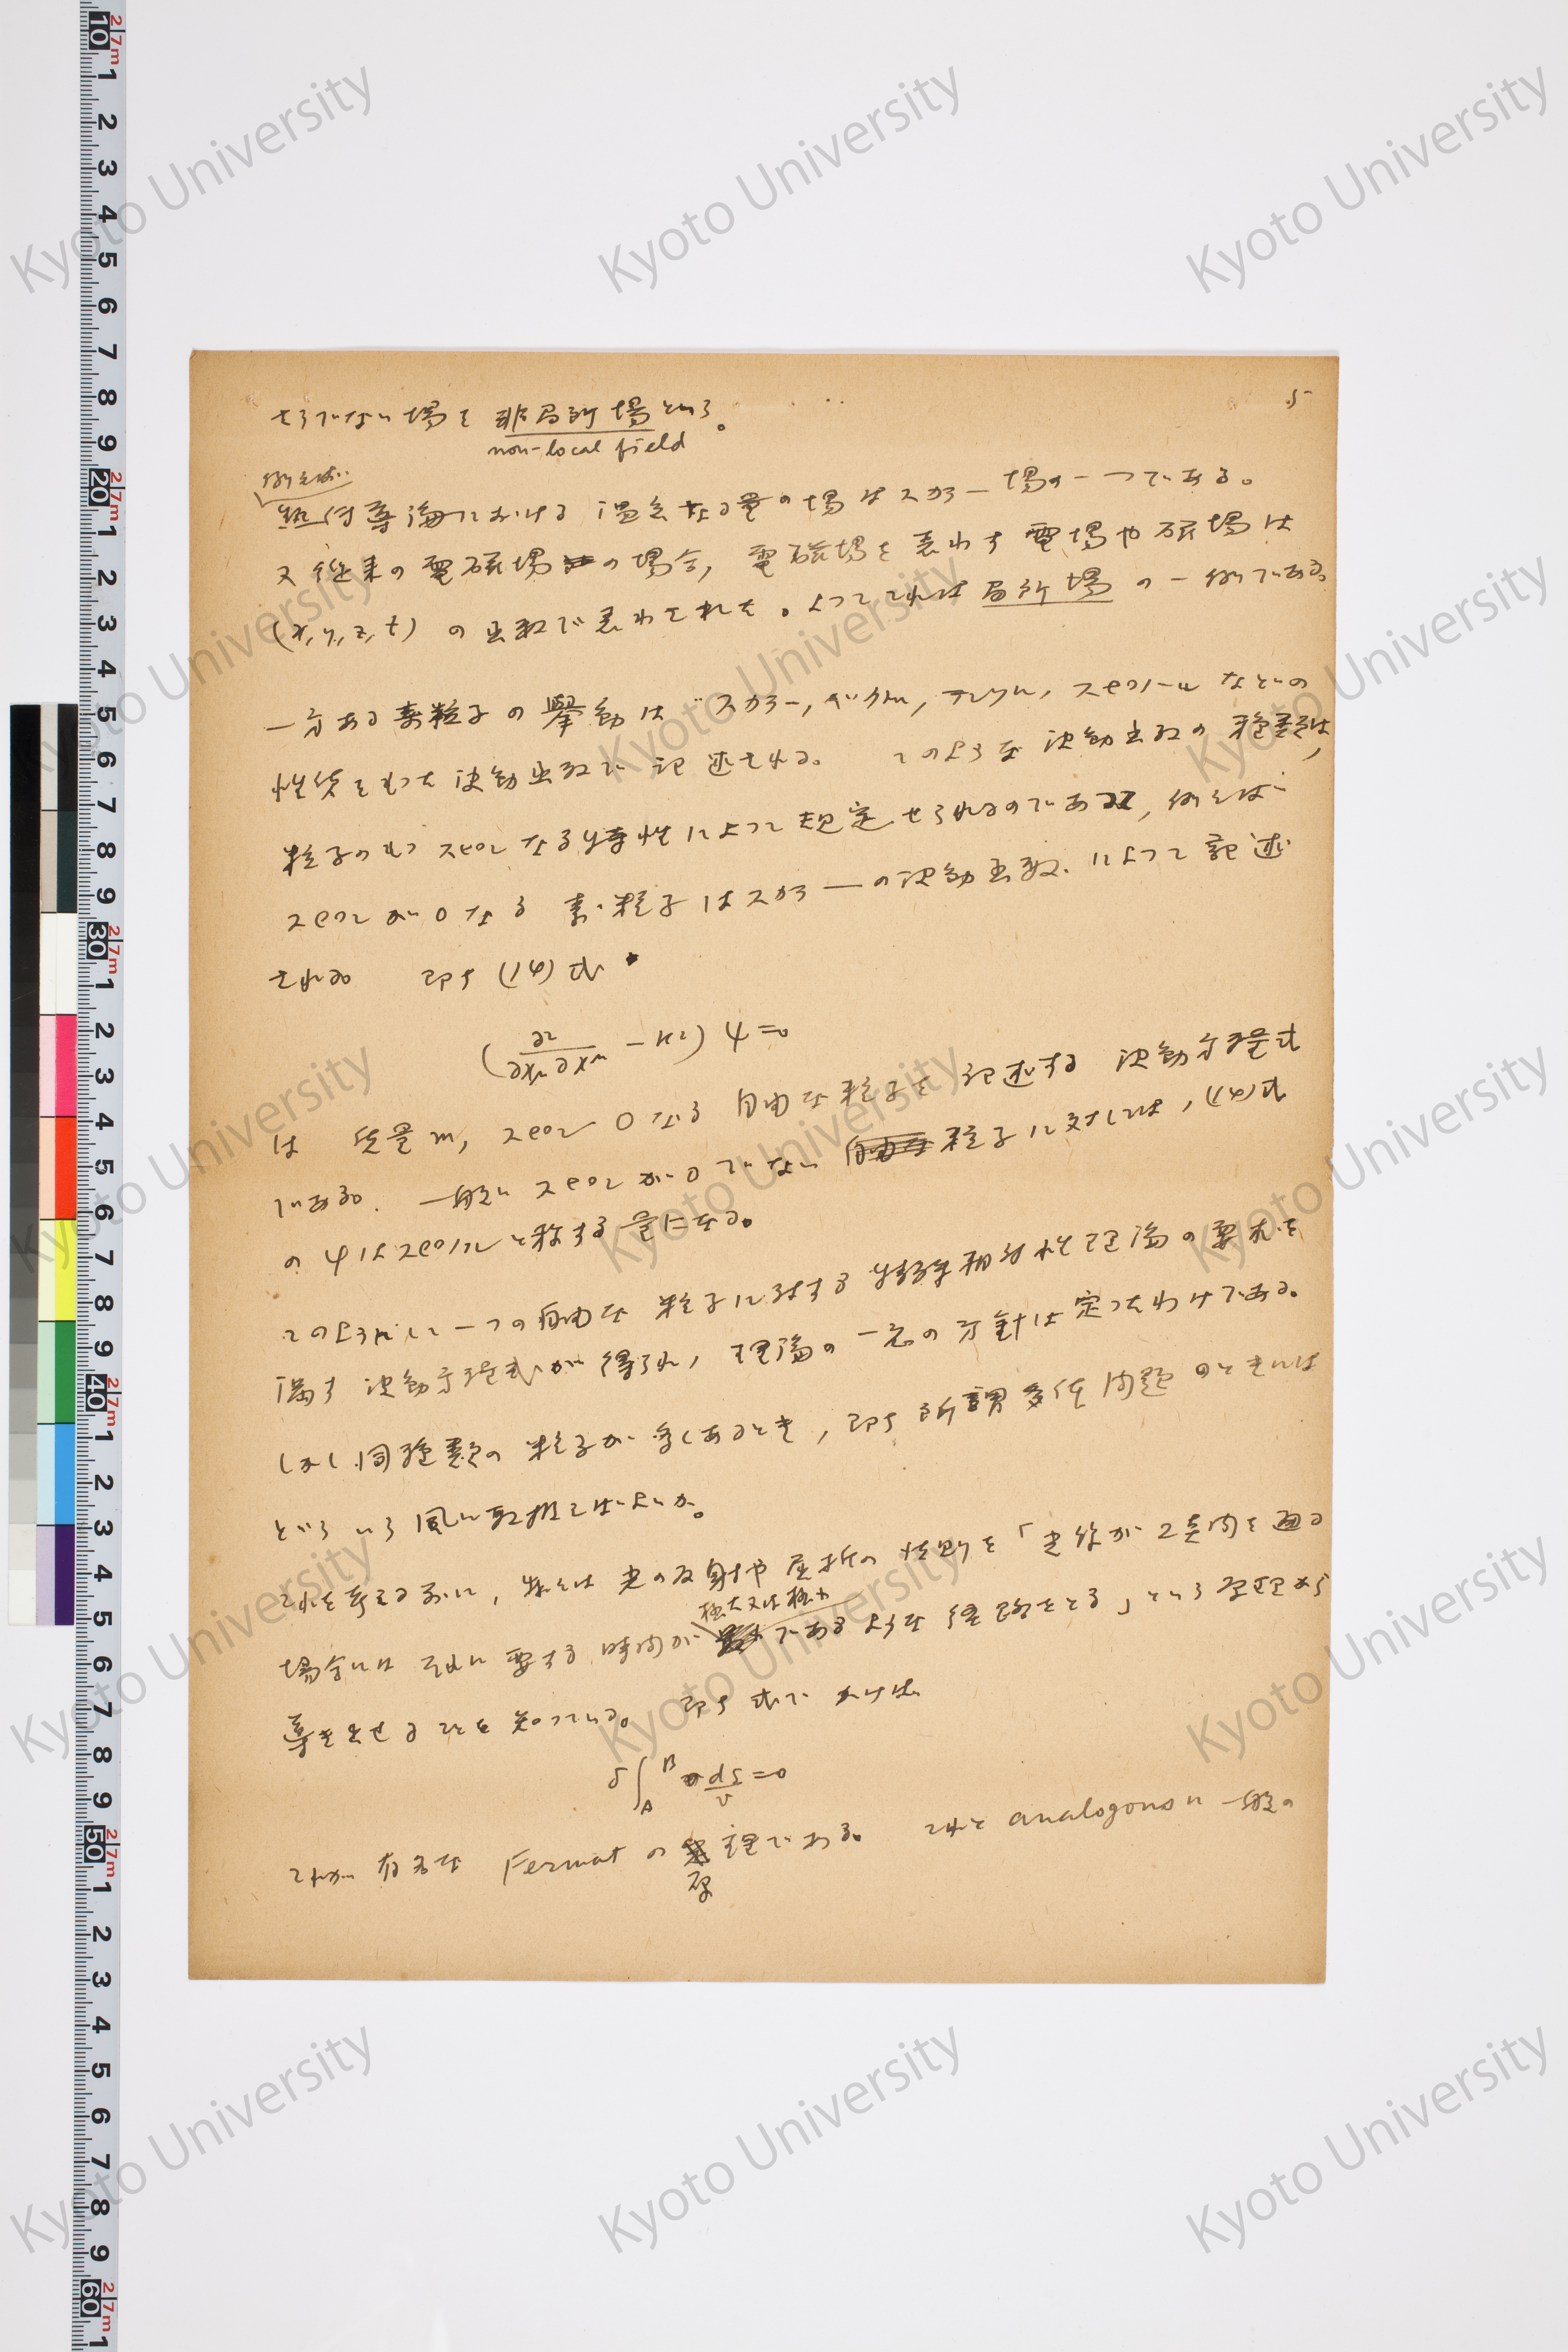 5
そうでない場を非局所場という。
non-local field
例えば
熱伝導論における温度なる量の場はスカラー場の一つである。
又従来の電磁場の場合, 電磁場を表わす電場や磁場は
(x, y, z, t) の函数で表わされた。よってこれは局所場の一例である。
一方ある素粒子の挙動はスカラー, ベクトル, テンソル, スピノールなどの
性質をもった波動函数で記述される。このような波動函数の種類は,
粒子のもつスピンなる特性によって規定せられるのであって, 例えば
スピンが0なる素粒子はスカラーの波動函数によって記述
される。即ち(14)式
(∂²/∂xμ∂xμ − κ²) ψ = 0
は 質量m, スピン0なる自由な粒子を記述する波動方程式
である。一般にスピンが0でない粒子に対しては, (14)式
のψはスピノルと称する量になる。
このように一つの自由な粒子に対する特殊相対性理論の要求を
満す波動方程式が得られ, 理論の一応の方針は定ったわけである。
しかし同種類の粒子が多くあるとき, 即ち所謂多体問題のときには
どういう風に取扱えばよいか。
これを考える前に, 我々は光の反射や屈折の法則を「光線が2点間を通る
極大又は極小
場合にはそれに要する時間がであるような経路をとる」という原理から
導き出せることを知っている。即ち式でかけば
δ∫_A^B ds/v = 0
これが有名な Fermat の原理である。これと analogous に一般の
Kyoto University